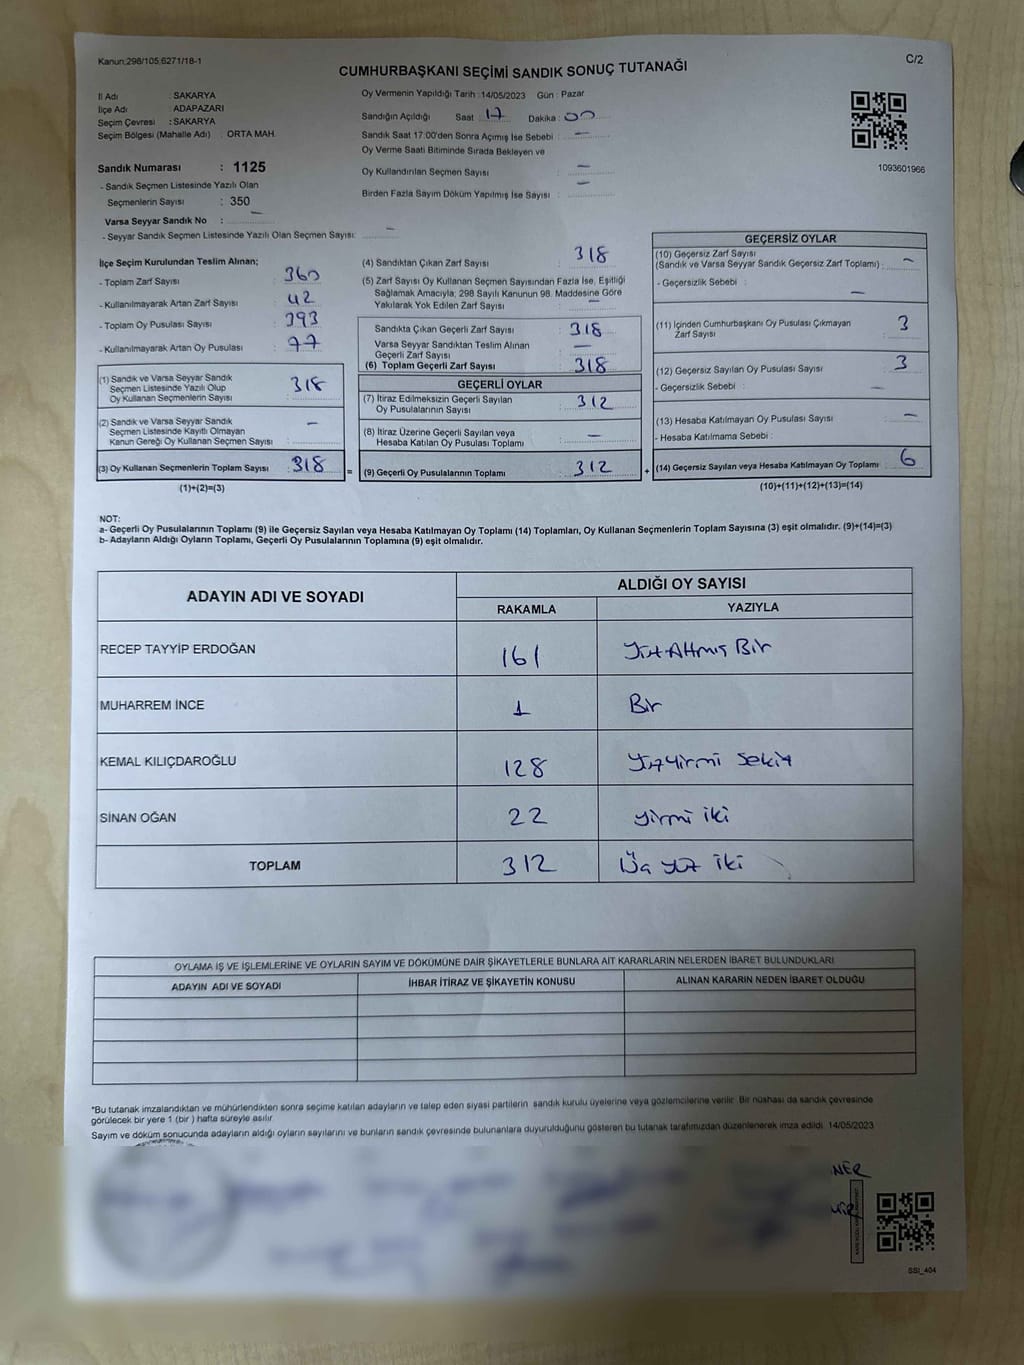 Kanun:298/105;6271/18-1
C/2
CUMHURBAŞKANI SEÇİMİ SANDIK SONUÇ TUTANAĞI
İl Adı : SAKARYA
İlçe Adı : ADAPAZARI
Seçim Çevresi : SAKARYA
Seçim Bölgesi (Mahalle Adı) : ORTA MAH.
Oy Vermenin Yapıldığı Tarih :14/05/2023 Gün : Pazar
Sandığın Açıldığı Saat : 17 Dakika : 00
Sandık Saat 17:00'den Sonra Açımış İse Sebebi : —
Oy Verme Saati Bitiminde Sırada Bekleyen ve
Oy Kullandırılan Seçmen Sayısı : —
Birden Fazla Sayım Döküm Yapılmış İse Sayısı : —
1093601966
Sandık Numarası : 1125
- Sandık Seçmen Listesinde Yazılı Olan
Seçmenlerin Sayısı : 350
Varsa Seyyar Sandık No : —
- Seyyar Sandık Seçmen Listesinde Yazılı Olan Seçmen Sayısı: —
İlçe Seçim Kurulundan Teslim Alınan;
- Toplam Zarf Sayısı : 360
- Kullanılmayarak Artan Zarf Sayısı : 42
- Toplam Oy Pusulası Sayısı : 393
- Kullanılmayarak Artan Oy Pusulası : 77
(1) Sandık ve Varsa Seyyar Sandık
Seçmen Listesinde Yazılı Olup
Oy Kullanan Seçmenlerin Sayısı : 318
(2) Sandık ve Varsa Seyyar Sandık
Seçmen Listesinde Kayıtlı Olmayan
Kanun Gereği Oy Kullanan Seçmen Sayısı : —
(3) Oy Kullanan Seçmenlerin Toplam Sayısı : 318
(1)+(2)=(3)
=
(4) Sandıktan Çıkan Zarf Sayısı : 318
(5) Zarf Sayısı Oy Kullanan Seçmen Sayısından Fazla İse, Eşitliği
Sağlamak Amacıyla; 298 Sayılı Kanunun 98. Maddesine Göre
Yakılarak Yok Edilen Zarf Sayısı : —
Sandıkta Çıkan Geçerli Zarf Sayısı : 318
Varsa Seyyar Sandıktan Teslim Alınan
Geçerli Zarf Sayısı : —
(6) Toplam Geçerli Zarf Sayısı : 318
GEÇERLİ OYLAR
(7) İtiraz Edilmeksizin Geçerli Sayılan
Oy Pusulalarının Sayısı : 312
(8) İtiraz Üzerine Geçerli Sayılan veya
Hesaba Katılan Oy Pusulası Toplamı : —
(9) Geçerli Oy Pusulalarının Toplamı : 312
+
GEÇERSİZ OYLAR
(10) Geçersiz Zarf Sayısı
(Sandık ve Varsa Seyyar Sandık Geçersiz Zarf Toplamı) : —
- Geçersizlik Sebebi : —
(11) İçinden Cumhurbaşkanı Oy Pusulası Çıkmayan
Zarf Sayısı : 3
(12) Geçersiz Sayılan Oy Pusulası Sayısı : 3
- Geçersizlik Sebebi : —
(13) Hesaba Katılmayan Oy Pusulası Sayısı : —
- Hesaba Katılmama Sebebi :
(14) Geçersiz Sayılan veya Hesaba Katılmayan Oy Toplamı : 6
(10)+(11)+(12)+(13)=(14)
NOT:
a- Geçerli Oy Pusulalarının Toplamı (9) ile Geçersiz Sayılan veya Hesaba Katılmayan Oy Toplamı (14) Toplamları, Oy Kullanan Seçmenlerin Toplam Sayısına (3) eşit olmalıdır. (9)+(14)=(3)
b- Adayların Aldığı Oyların Toplamı, Geçerli Oy Pusulalarının Toplamına (9) eşit olmalıdır.
ADAYIN ADI VE SOYADI ALDIĞI OY SAYISI
RAKAMLA YAZIYLA
RECEP TAYYİP ERDOĞAN 161 YüzAltmış Bir
MUHARREM İNCE 1 Bir
KEMAL KILIÇDAROĞLU 128 Yüzyirmi Sekiz
SİNAN OĞAN 22 yirmi iki
TOPLAM 312 Üç yüz iki
OYLAMA İŞ VE İŞLEMLERİNE VE OYLARIN SAYIM VE DÖKÜMÜNE DAİR ŞİKAYETLERLE BUNLARA AİT KARARLARIN NELERDEN İBARET BULUNDUKLARI
ADAYIN ADI VE SOYADI İHBAR İTİRAZ VE ŞİKAYETİN KONUSU ALINAN KARARIN NEDEN İBARET OLDUĞU
*Bu tutanak imzalandıktan ve mühürlendikten sonra seçime katılan adayların ve talep eden siyasi partilerin sandık kurulu üyelerine veya gözlemcilerine verilir. Bir nüshası da sandık çevresinde
görülecek bir yere 1 (bir ) hafta süreyle asılır.
Sayım ve döküm sonucunda adayların aldığı oyların sayılarını ve bunların sandık çevresinde bulunanlara duyurulduğunu gösteren bu tutanak tarafımızdan düzenlenerek imza edildi. 14/05/2023
NER
SSI_404